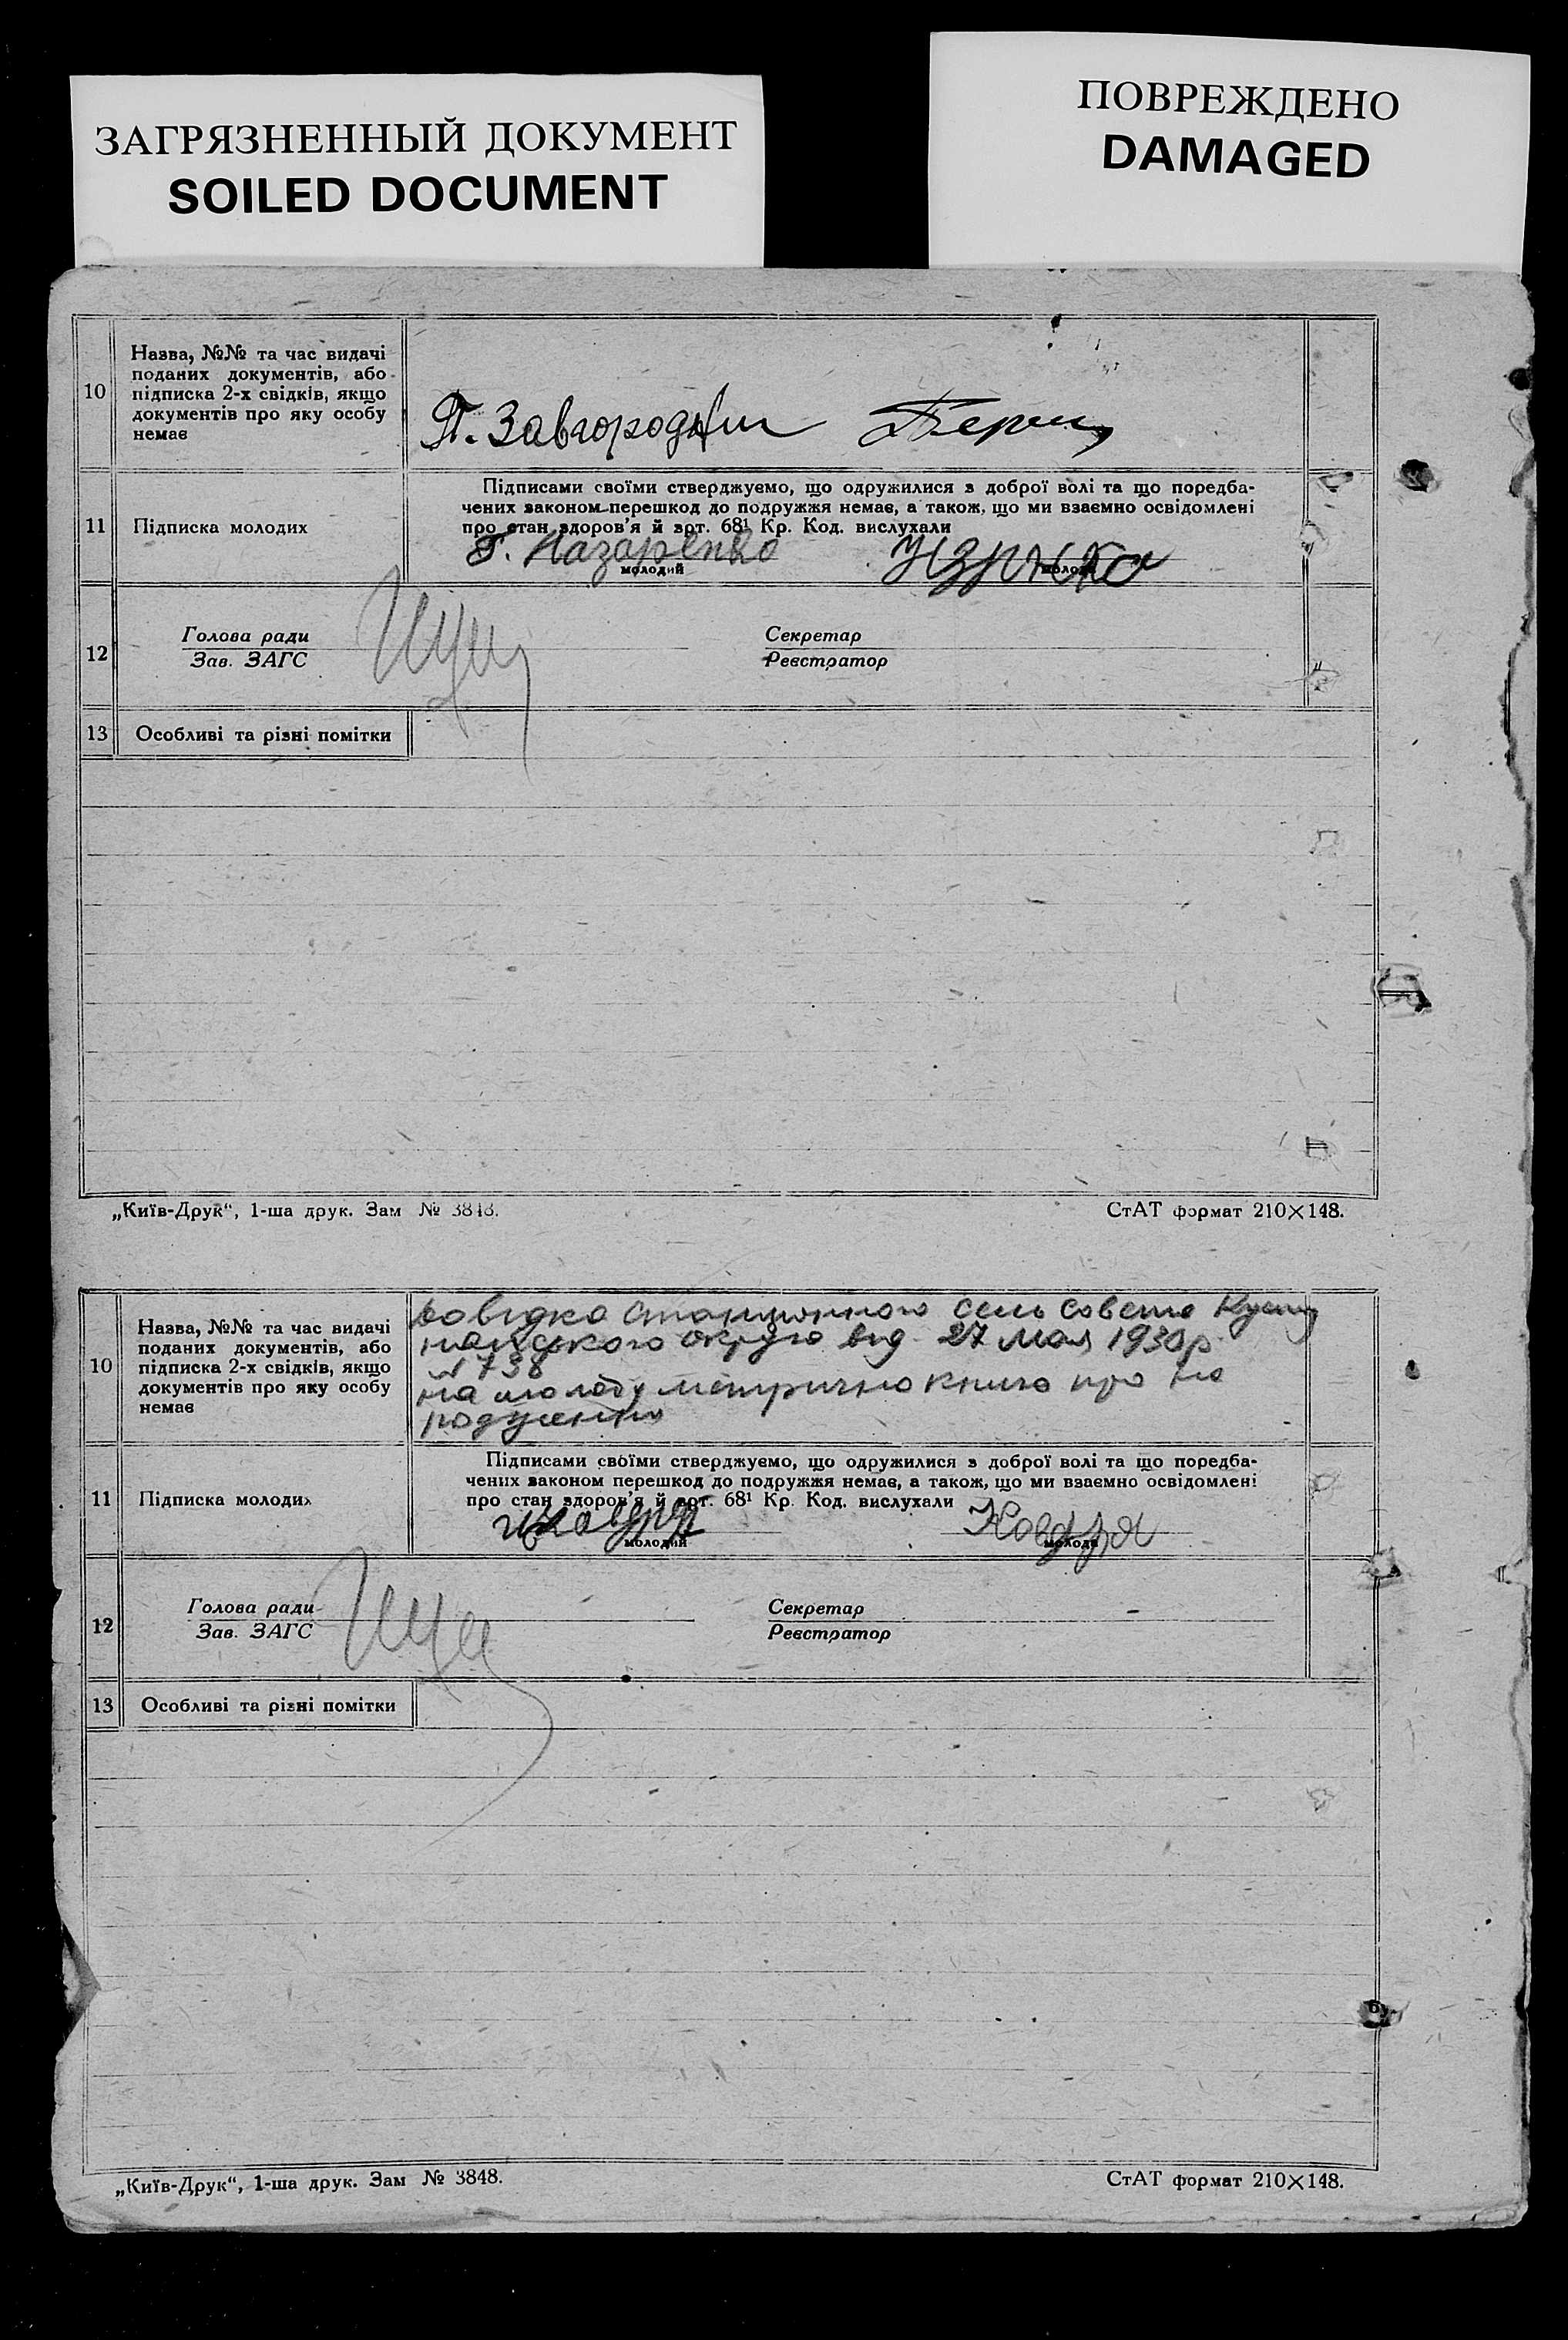 ЗАГРЯЗНЕННЫЙ ДОКУМЕНТ
SOILED DOCUMENT
ПОВРЕЖДЕНО
DAMAGED
10
Назва, №№ та час видачі
поданих документів, або
підписка 2-х свідків, якщо
документів про яку особу
немає
П. Завгородний
11
Підписка молодих
Підписами своїми стверджуємо, що одружилися з доброї волі та що поредба-
чених законом перешкод до подружжя немає, а також, що ми взаємно освідомлені
про стан здоров'я й арт. 68¹ Кр. Код. вислухали
Г. Назаренко
молодий
молода
12
Голова ради
Зав. ЗАГС
Секретар
Реєстратор
13
Особливі та різні помітки
„Київ-Друк“, 1-ша друк. Зам № 3848.
СтАТ формат 210×148.
10
Назва, №№ та час видачі
поданих документів, або
підписка 2-х свідків, якщо
документів про яку особу
немає
довідка Станционного сель Совета
округа від 27 мая 1930 р.
N 738
на молоду метрична книга про на
родження
11
Підписка молодих
Підписами своїми стверджуємо, що одружилися з доброї волі та що поредба-
чених законом перешкод до подружжя немає, а також, що ми взаємно освідомлені
про стан здоров'я й арт. 68¹ Кр. Код. вислухали
молодий
Ковдря
молода
12
Голова ради
Зав. ЗАГС
Секретар
Реєстратор
13
Особливі та різні помітки
„Київ-Друк“, 1-ша друк. Зам № 3848.
СтАТ формат 210×148.